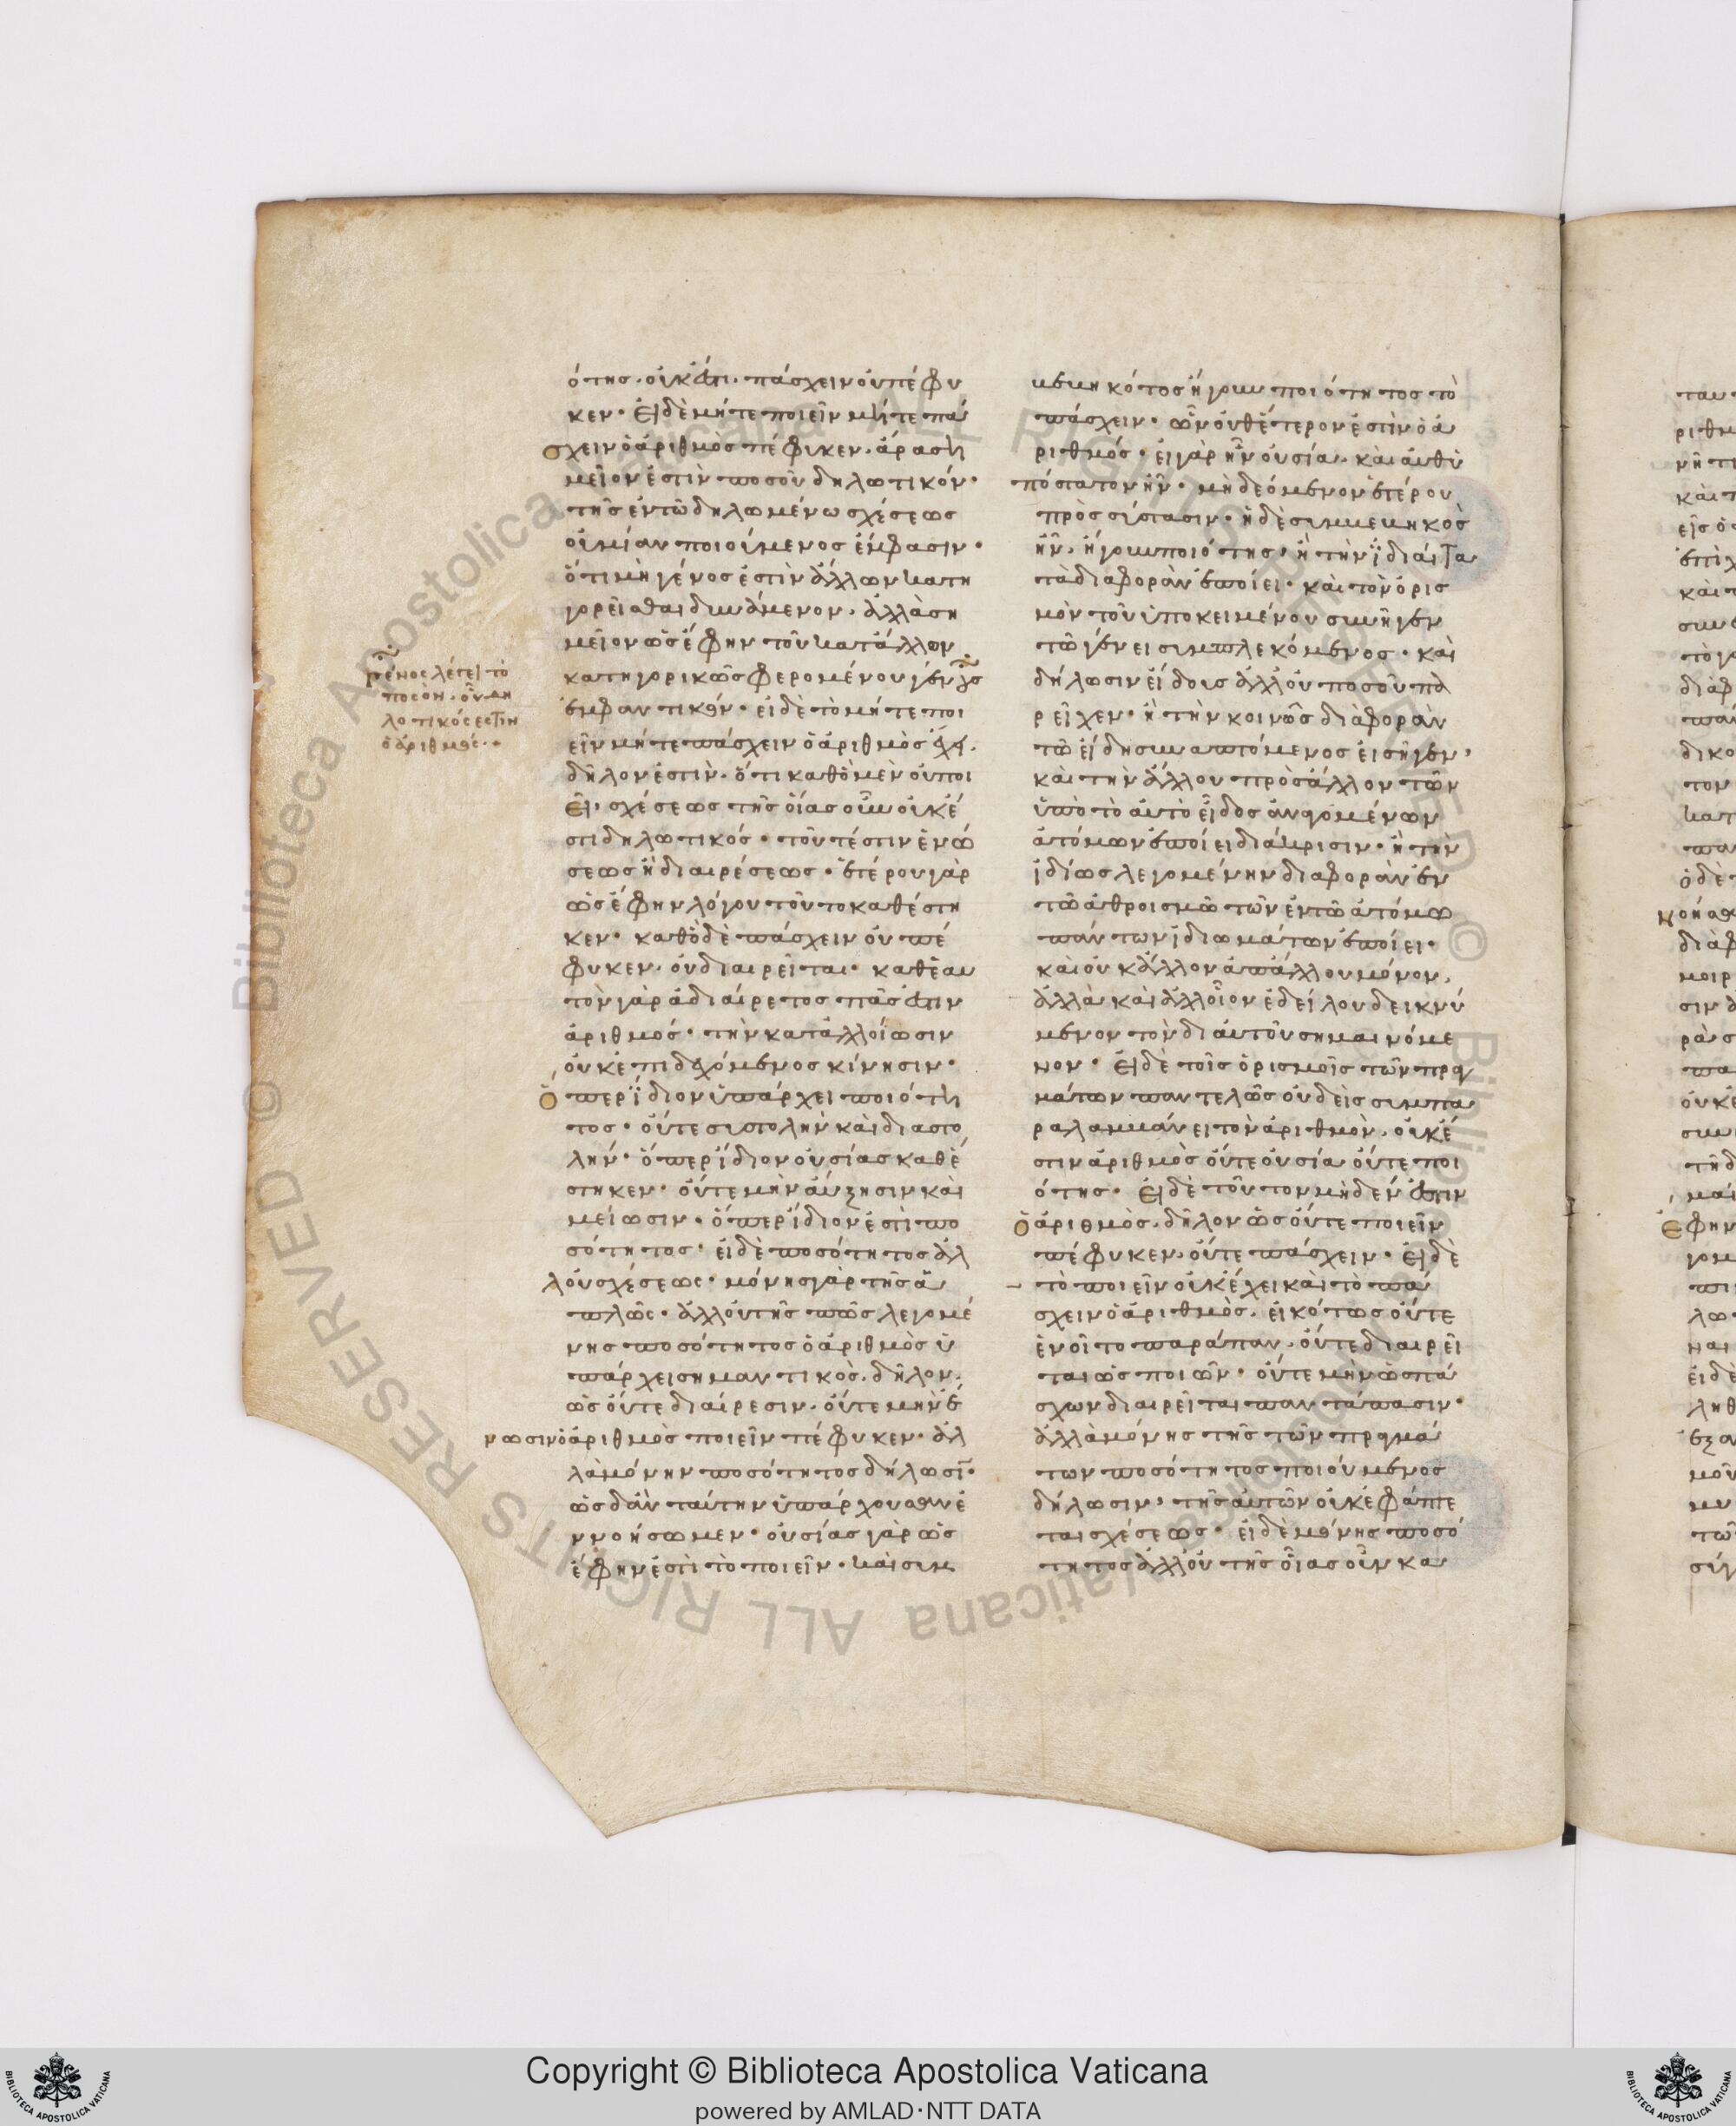 ότης· οὐκ ἔστι· πάσχειν οὐ πέφυ
κεν· Εἰ δὲ μήτε ποιεῖν μήτε πά
σχειν ὁ ἀριθμὸς πέφυκεν· ἄρα ση
μεῖον ἐστὶν ποσοῦ δηλωτικόν·
τῆς ἐν τῶ δηλωμένω σχέσεως
οὐ μίαν ποιούμενος ἔμφασιν·
ὅτι μὴ γένος ἐστὶν ἄλλων κατη
γορεῖσθαι δυνάμενον· ἀλλὰ ση
μεῖον ὡς ἔφην τοῦ κατ' ἄλλων
κατηγορικῶς φερομένου γένους
ἐμφαντικόν· εἰ δὲ τὸ μήτε ποι
εῖν μήτε πάσχειν ὁ ἀριθμὸς ἔχει·
δῆλον ἐστὶν· ὅτι καθὸ μὲν οὐ ποι
εῖ, σχέσεως τῆς οἵας οὖν οὐκ έ
στι δηλωτικός· τοῦτέστιν ἑνώ
σεως ἢ διαιρέσεως· ἑτέρου γὰρ
ὡς ἔφην λόγου τοῦτο καθέστη
κεν· καθὸ δὲ πάσχειν οὐ πέ
φυκεν· οὐ διαιρεῖται· καθ' ἑαυ
τὸν γὰρ ἀδιαίρετος πᾶς ἐστιν
ἀριθμός· τὴν κατ' ἀλλοίωσιν
οὐκ ἐπιδεχόμενος κίνησιν·
ὅπερ ἴδιον ὑπάρχει ποιότη
τος· οὔτε συστολὴν καὶ διαστο
λήν· ὅπερ ἴδιον οὐσίας καθέ
στηκεν· οὔτε μὴν αὔξησιν καὶ
μείωσιν· ὅπερ ἴδιον ἐστὶ πο
σότητος· εἰ δὲ ποσότητος ἀλ
λ' οὐ σχέσεως· μόνης γὰρ τῆς ἁ
πλῶς· ἀλλ' οὐ τῆς πῶς λεγομέ
νης ποσότητος ὁ ἀριθμὸς ὑ
πάρχει σημαντικός· δῆλον·
ὡς οὔτε διαίρεσιν· οὔτε μὴν ἕ
νωσιν ὁ ἀριθμὸς ποιεῖν πέφυκεν· ἀλ
λὰ μόνην ποσότητος δήλωσιν·
ὡς δ' ἂν ταύτην ὑπάρχουσαν ἐ
ννοήσωμεν· οὐσίας γὰρ ὡς
ἔφην ἐστὶ τὸ ποιεῖν· καὶ συμ
γένος λέγει τὸ
ποσὸν· οὗ δη
λωτικός ἐστιν
ὁ ἀριθμός·
βεβηκότος ἤγουν ποιότητος τὸ
πάσχειν· ὧν οὐθέτερον ἐστὶν ὁ ἀ
ριθμός· εἰ γὰρ ἦν οὐσία· καὶ αὐθυ
πόστατον ἦν· μὴ δεόμενον ἑτέρου
πρὸς σύστασιν· ἢ δὲ συμβεβηκὸς
ἦν· ἤγουν ποιότης, ἢ τὴν ϊδιαίτα
τα διαφορὰν ἐποίει· καὶ τὸν ὁρισ
μὸν τοῦ ὑποκειμένου συνῆγεν
τῶ γένει συμπλεκόμενος· καὶ
δήλωσιν εἴδους ἀλλ' οὐ ποσοῦ πα
ρεῖχεν· ἢ τὴν κοινῶς διαφορὰν
τῶ εἴδη συναπτόμενος εἰσῆγεν,
καὶ τὴν ἄλλου πρὸς ἄλλον τῶν
ὑπὸ τὸ αὐτὸ εἶδος ἀναγομένων
ἀτόμων ἐποίει διάκρισιν· ἢ τὴν
ϊδίως λεγομένην διαφορὰν ἐν
τῶ ἀθροισμῶ τῶν ἐν τῶ ἀτόμω
πάντων ϊδιωμάτων ἐποίει·
καὶ οὐκ ἄλλον ἀπ' ἄλλου μόνον·
ἀλλὰ καὶ ἀλλοῖον ἐδείλου δεικνύ
μενον τὸν δι' αὐτοῦ σημαινόμε
νον· Εἰ δὲ τοῖς ὁρισμοῖς τῶν πραγ
μάτων παντελῶς οὐδεὶς συμπα
ραλαμβάνει τὸν ἀριθμὸν· οὐκ έ
στιν ἀριθμὸς οὔτε οὐσία οὔτε ποι
ότης· Εἰ δὲ τούτον μηδέν ἐστιν
ὁ ἀριθμὸς· δῆλον ὡς οὔτε ποιεῖν
πέφυκεν· οὔτε πάσχειν· Εἰ δὲ
τὸ ποιεῖν οὐκ ἔχει καὶ τὸ πά
σχειν ὁ ἀριθμὸς· εἰκότως οὔτε
ἑνοῖ τὸ παράπαν· οὔτε διαιρεῖ
ται ὡς ποιῶν· οὔτε μὴν ὡς πά
σχων διαιρεῖται παντάπασιν·
ἀλλὰ μόνης τῆς τῶν πραγμά
των ποσότητος ποιούμενος
δήλωσιν, τῆς αὐτῶν οὐκ ἐφάπτε
ται σχέσεως· εἰ δὲ μόνης ποσό
τητος ἀλλ' οὐ τῆς οἵας οὖν κα
Copyright © Biblioteca Apostolica Vaticana
powered by AMLAD・NTT DATA